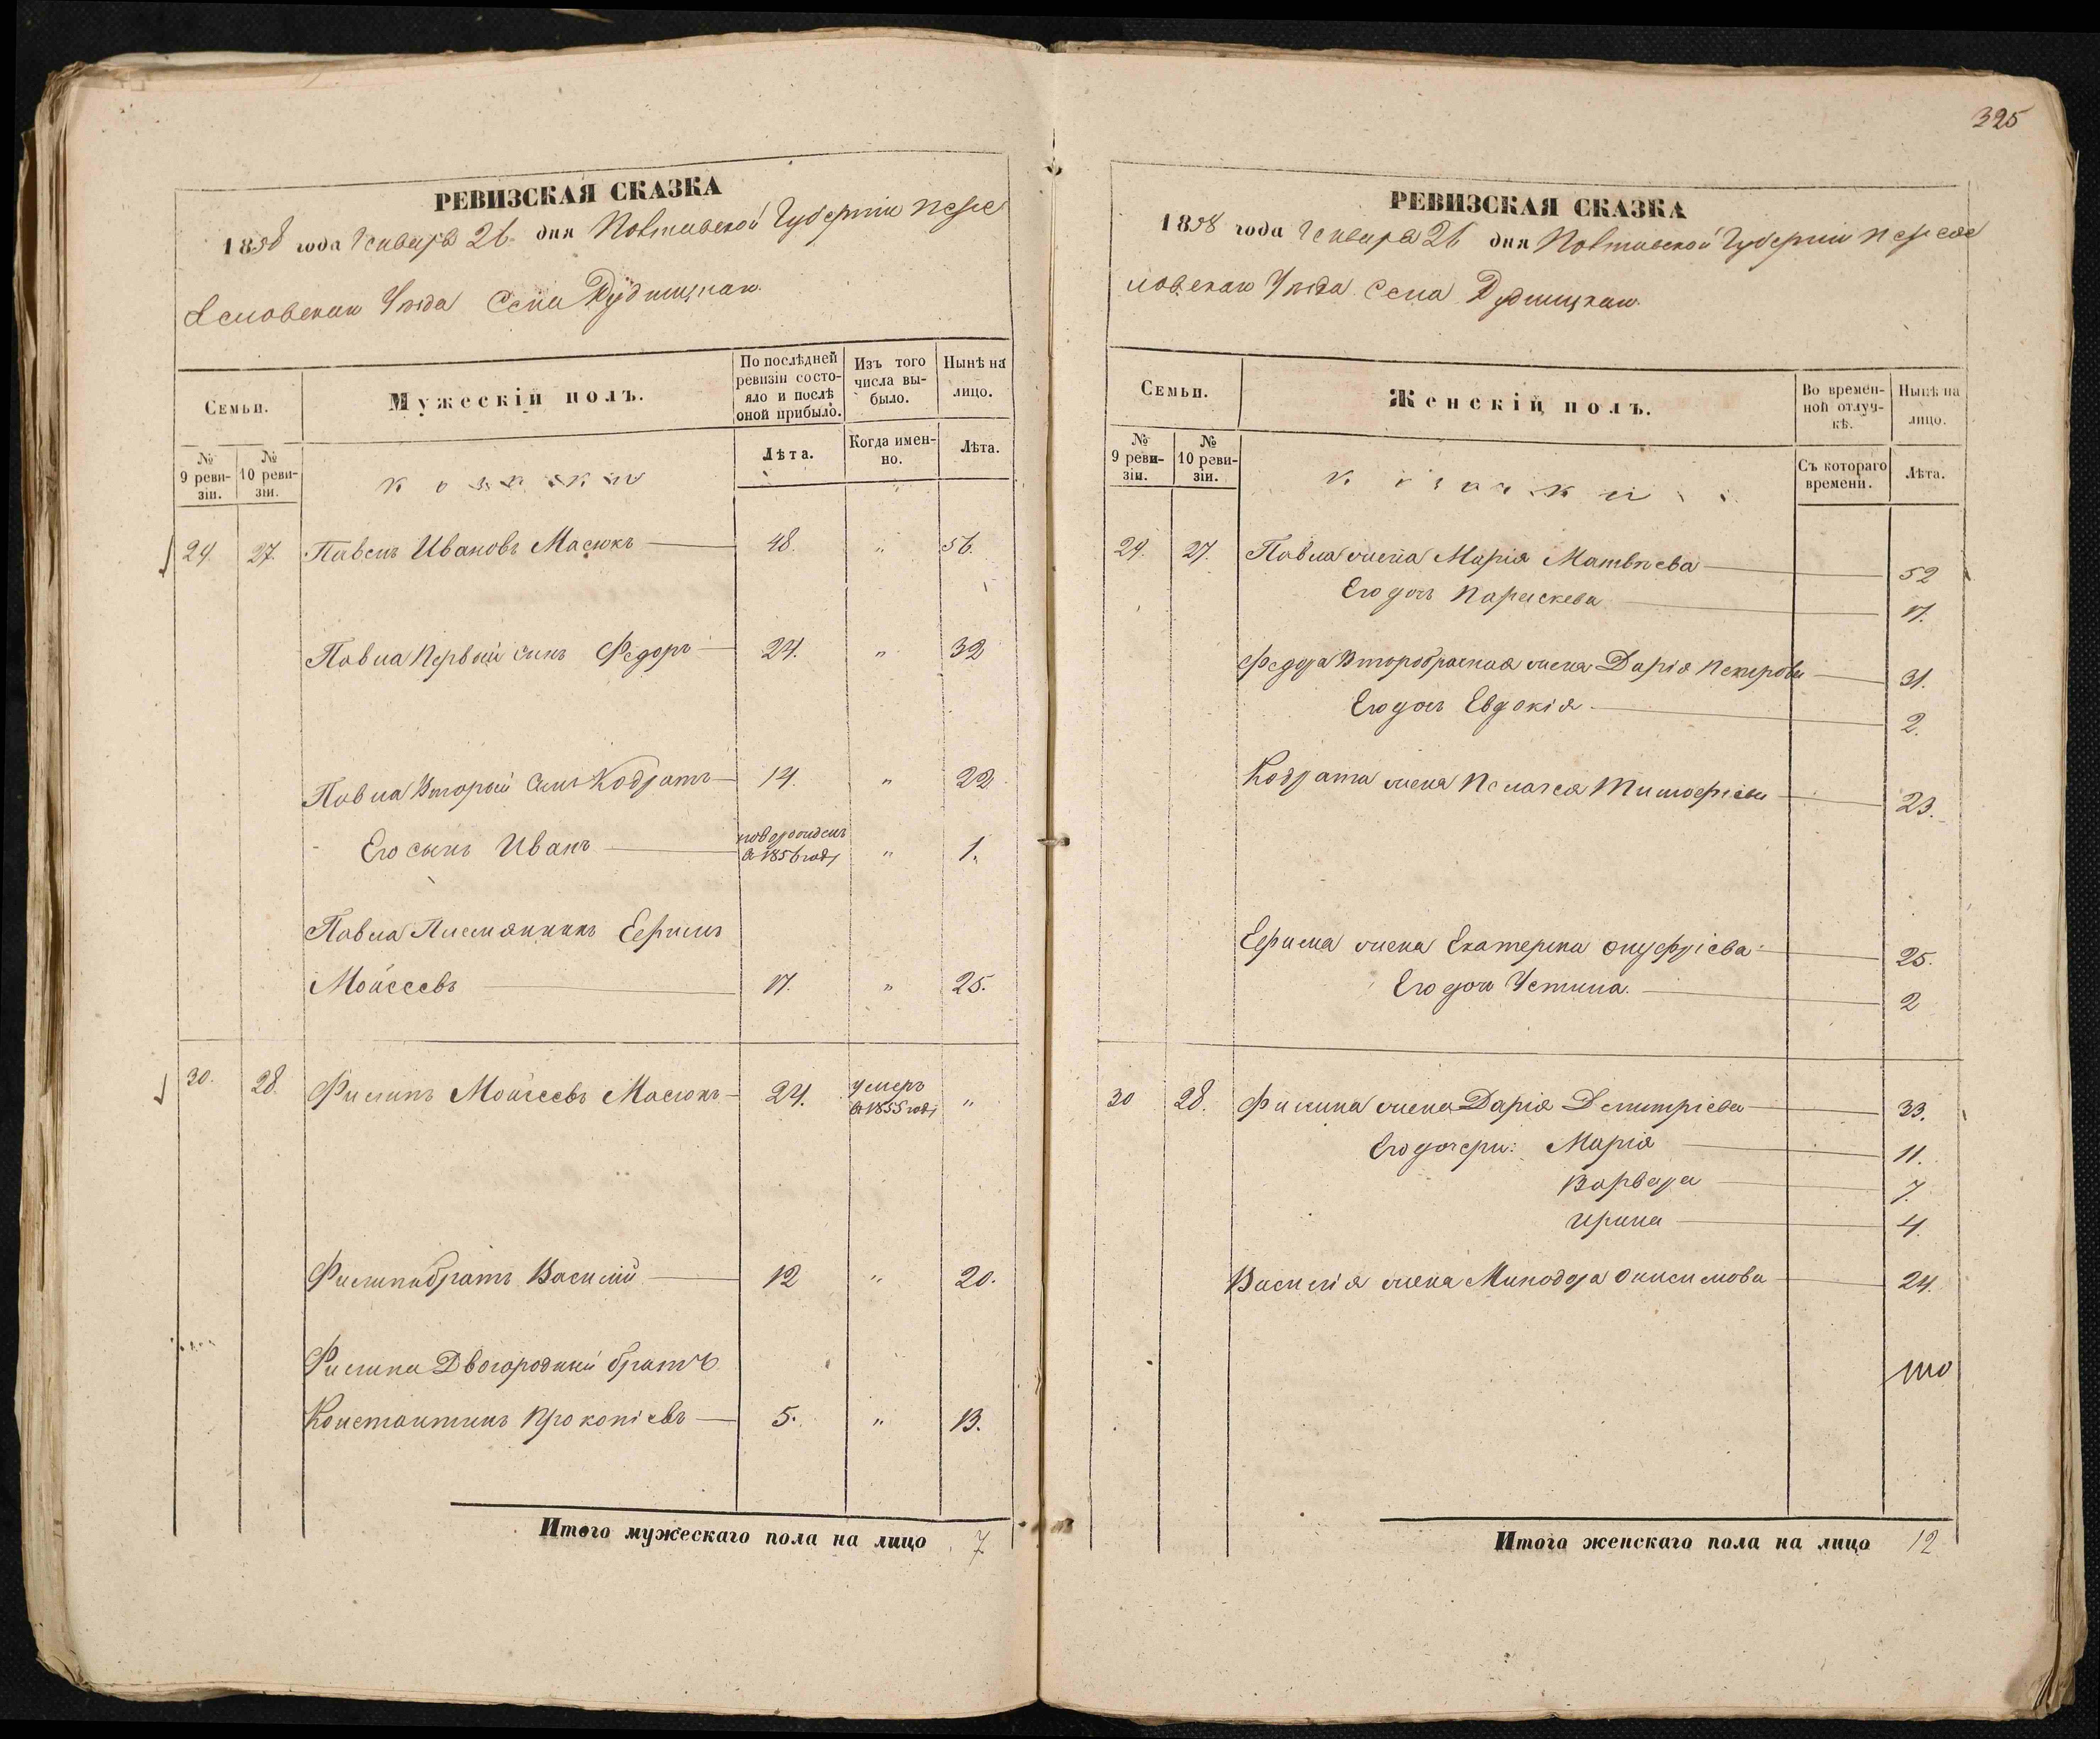 РЕВИЗСКАЯ СКАЗКА
1858 года Генваря 26 дня Полтавской Губерніи Перея
славскаго Уѣзда Села
Семьи.
Мужескій полъ.
По послѣдней ревизіи состояло и послѣ оной прибыло.
Изъ того числа выбыло.
Нынѣ на лицо.
№ 9 ревизіи.
№ 10 ревизіи.
козаки
Лѣта.
Когда именно.
Лѣта.
24. 27. Павелъ Ивановъ Масюкъ 48. " 56.
Павла Первый сынъ Федоръ 24. " 32
Павла Вторый Сынъ Кодратъ 14. " 22
Его сынъ Иванъ новорожденъ в 1856 году " 1.
Павла Племянникъ Ефимъ
Моисеевъ 17. " 25.
30. 28. Филипъ Моисеевъ Масюкъ 24. умеръ в 1855 году "
Филипа братъ Василій 12 " 20.
Филипа Двогородный братъ
Константинъ Прокопіевъ 5. " 13.
Итого мужескаго пола на лицо 7
325
РЕВИЗСКАЯ СКАЗКА
1858 года Генваря 26 дня Полтавской Губерніи Переяс
ловскаго Уѣзда Села
Семьи.
Женскій полъ.
Во временной отлучкѣ.
Нынѣ на лицо.
№ 9 ревизіи.
№ 10 ревизіи.
козачки
Съ котораго времени.
Лѣта.
24. 27. Павла жена Марія Матвѣева 52
Его дочь Параскева 17.
Федора Второбрачная жена Дарія Петрова 31.
Его дочь Евдокія 2.
Кодрата жена Пелагея Тимофеева 23.
Ефима жена Екатерина Онуфріева 25.
Его дочь Устина. 2
30 28. Филипа жена Дарія Демитріева 33.
Его дочери: Марія 11.
Варвара 7.
Ирина 4.
Василія жена Минодора Онисимова 24.
Итого женскаго пола на лицо 12